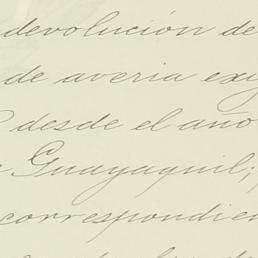 devolución de
de averia exi
desde el año
Guayaquil;
correspondien